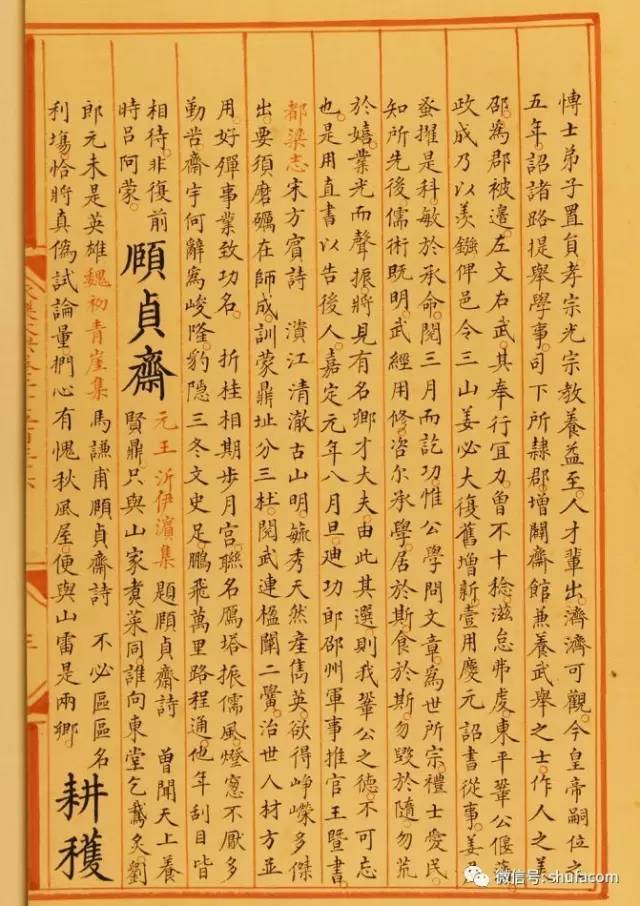 愽士弟子置負孝宗光宗教養益至人才輩出濟濟可觀今皇帝嗣位之
五年詔諸路提舉學事司下所隷郡增闢齋館兼養武舉之士作人之美
邵為郡被邊左文右武其奉行宜力曾不十稔滋怠弗䖏東平鞏公偃藩
政成乃以羡鏹俾邑令三山姜必大復舊增新壹用慶元詔書從事姜
蚤擢是科敏於承命閱三月而訖功惟公學問文章為世所宗禮士愛民
知所先後儒術旣明武經用修咨尔承學居於斯食於斯勿毀於隨勿荒
於嬉業光而聲振將見有名鄉才大夫由此其選則我鞏公之德不可忘
也是用直書以告後人嘉定元年八月旦迪功郎邵州軍事推官王暨書
都梁志宋方賓詩 濆江清澈古山明毓秀天然産雋英欲得崢嶸多傑
出要須磨礪在師成訓蒙鼎址分三閱武連楹闢二黌治世人材方並
用好殫事業致功名 折桂相期步月宫聯名鴈塔振儒風燈窓不厭多
勤苦齋宇何辭寫峻隆豹隱三冬文史足鵬飛萬里路程通他年刮目皆
相待非復前
時吕阿蒙
頤貞齋
元王沂伊濵集題頤貞齋詩 曽聞天上養
賢鼎只與山家煮菜同誰向東堂乞鵞炙劉
郎元未是英雄魏初青崖集馬謙甫頤貞齋詩 不必區區名
利塲恰將真僞試論量捫心有愧秋風屋便與山雷是兩鄉
耕穫
微信号: shufacom